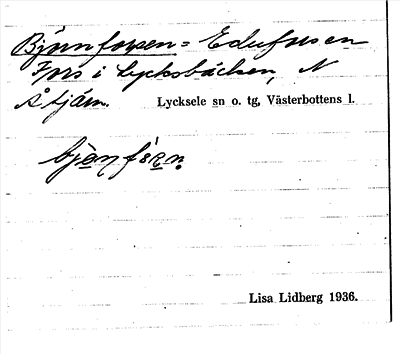 Björnforsen = Edeforsen
Fors i Lycksbäcken, N
Åtjärn. Lycksele sn o. tg, Västerbottens l.
Lisa Lidberg 1936.